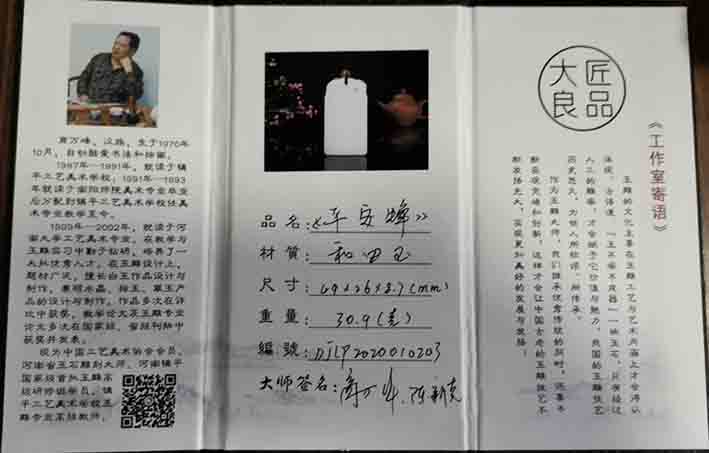 商万峰，汉族，生于1970年
10月，自幼酷爱书法和绘画。
1987—1991年，就读于镇
平工艺美术学校；1991—1993
年就读于南阳师院美术专业毕业
后分配到镇平工艺美术学校任美
术专业教学至今。
1999年—2002年，就读于
河南大学工艺美术专业。在教学与
玉雕实习中勤于钻研，培养了一
大批优秀人才。在玉雕设计上，
题材广泛，擅长白玉作品设计与
制作，兼雕水晶、独玉、翠玉产
品的设计与制作，作品多次在评
比中获奖。教学论文及玉雕专业
论文多次在国家级、省级刊物中
获奖并发表。
现为中国工艺美术协会会员，
河南省玉石雕刻大师、河南镇平
国家级首批玉雕高
级研修班学员，镇
平工艺美术学校玉
雕专业高级教师。
品名:《平安牌》
材質: 和田玉
尺寸: 49×26×8.7(mm)
重量: 30.9(克)
編號: DJLP2020010203
大师签名:
大匠
良品
《工作室寄语》
玉雕的文化主要在玉雕工艺与艺术内涵上才会得以
体现，古语道："玉不琢不成器"一块玉石，只有经过
人工的雕琢，才会赋予它价值与魅力，我国的玉雕技艺
历史悠久，为世人所称颂、所传承。
作为玉雕大师，我们继承优秀传统的同时，还要不
断实现突破和创新，这样才会让中国古老的玉雕技艺不
断发扬光大，实现更加美好的发展与发扬！